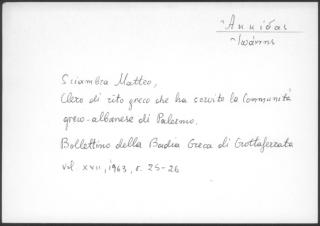 Ἀκκίδας
Ἰωάννης
Sciambra Matteo,
Clero di rito greco che ha servito la Comunità
greco-albanese di Palermo.
Bollettino della Badia Greca di Grottaferrata
vol. XVII, 1963, σ. 25-26